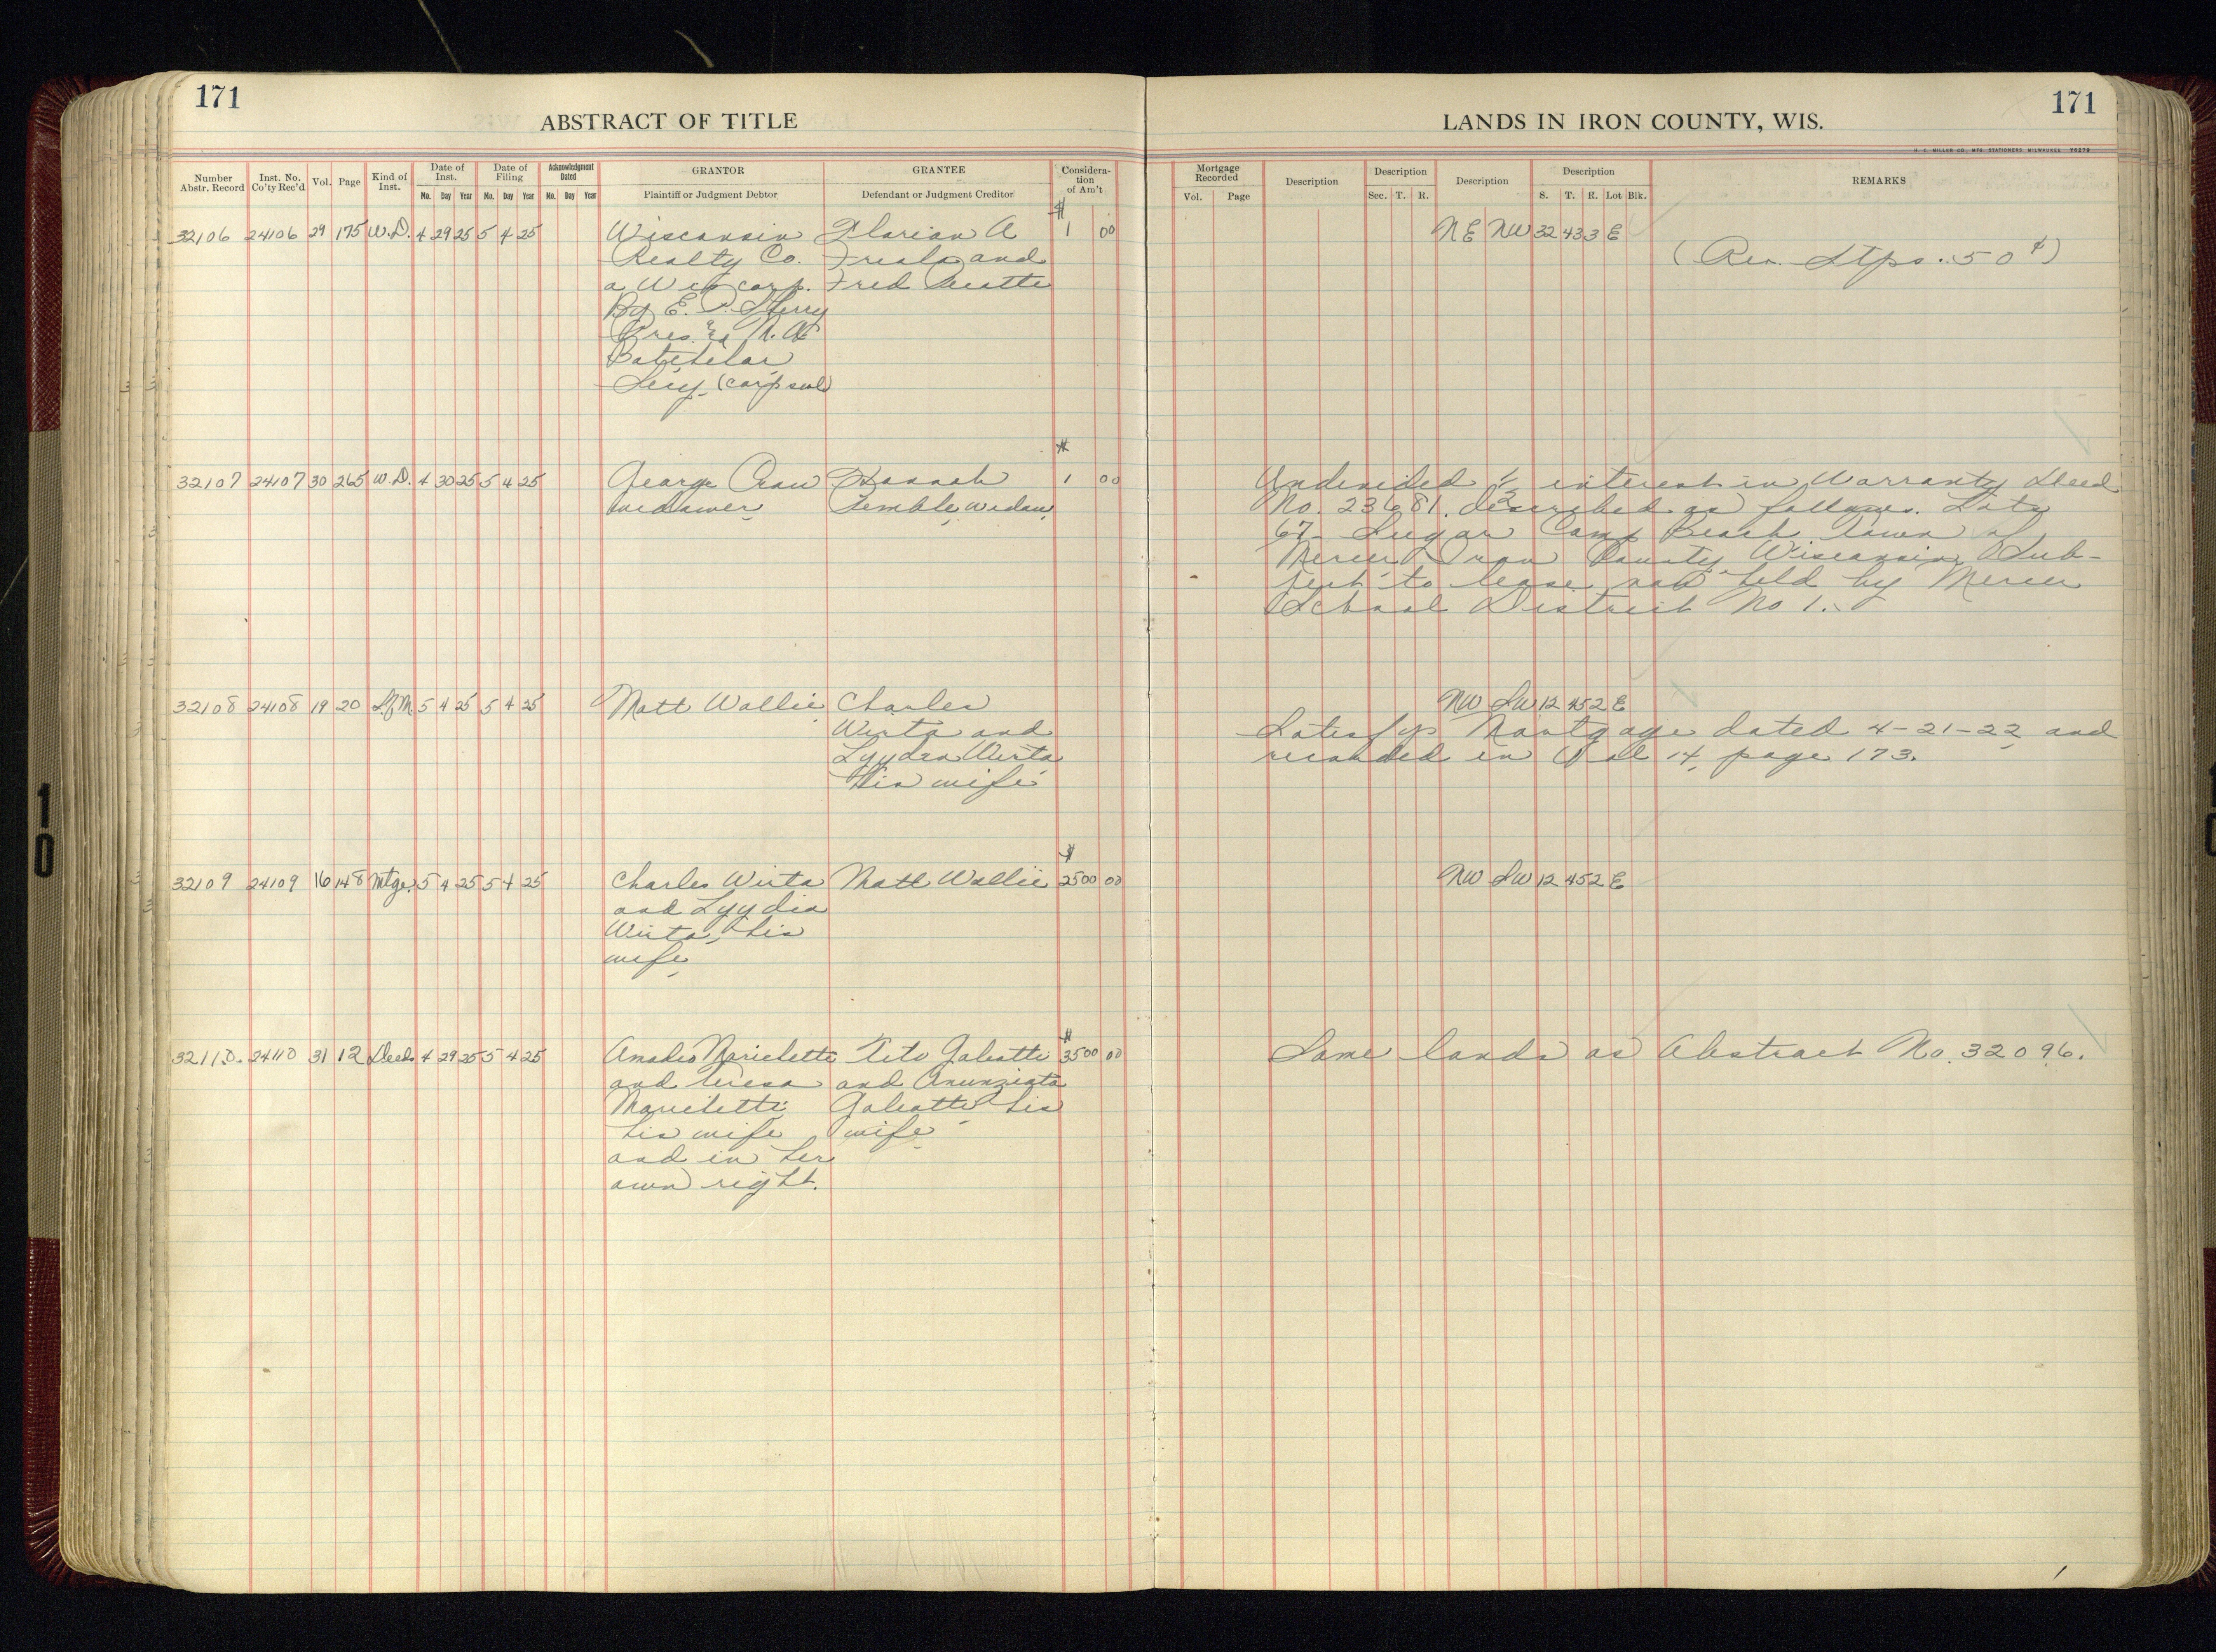 171
ABSTRACT OF TITLE
LANDS IN IRON COUNTY, WIS.
171
H. C. MILLER CO., MFG. STATIONERS, MILWAUKEE
Number Abstr. Record
Inst. No. Co'ty Rec'd
Vol.
Page
Kind of Inst.
Date of Inst.
Mo. Day Year
Date of Filing
Mo. Day Year
Acknowledgment Dated
Mo. Day Year
GRANTOR
Plaintiff or Judgment Debtor
GRANTEE
Defendant or Judgment Creditor
Considera-
tion
of Am't
Mortgage Recorded
Vol. Page
Description
Description
Sec. T. R.
Description
Description
S. T. R. Lot Blk.
REMARKS
32106 24106 29 175 W.D. 4 29 25 5 4 25
Wisconsin
Realty Co.
a Wis corp.
By E. P. Sherry
Pres. & N. A.
Batchelar
Secy (corp seal)
Florian A
and
Fred
$ 1 00
NE NW 32 43 3 E
(Rev. Stps. .50¢)
32107 24107 30 265 W.D. 4 30 25 5 4 25
George Craw
widower
Hannah
Kemble, widow
$ 1 00
Undivided 1/2 interest in Warranty Deed
No. 23681. described as follows. Lots
67- Sugar Camp Beach town of
Mercer Iron County, Wisconsin Sub-
ject to lease now held by Mercer
School District No 1.
32108 24108 19 20 S.of M. 5 4 25 5 4 25
Matt Wallii
Charles
Wirta and
Lyydia Wirta
his wife
NW SW 12 45 2 E
Satisfys Mortgage dated 4-21-22 and
recorded in Vol 14, page 173.
32109 24109 16 148 Mtge. 5 4 25 5 4 25
Charles Wirta
and Lyydia
Wirta, his
wife
Matt Wallii
$ 2500 00
NW SW 12 45 2 E
32110. 24110 31 12 Deed 4 29 25 5 4 25
Amadeo Marichetti
and teresa
Marichetti
his wife
and in her
own right.
Tito Galeotti
and Anunziata
Galeotti his
wife
$ 3500 00
Same lands as Abstract No. 32096.